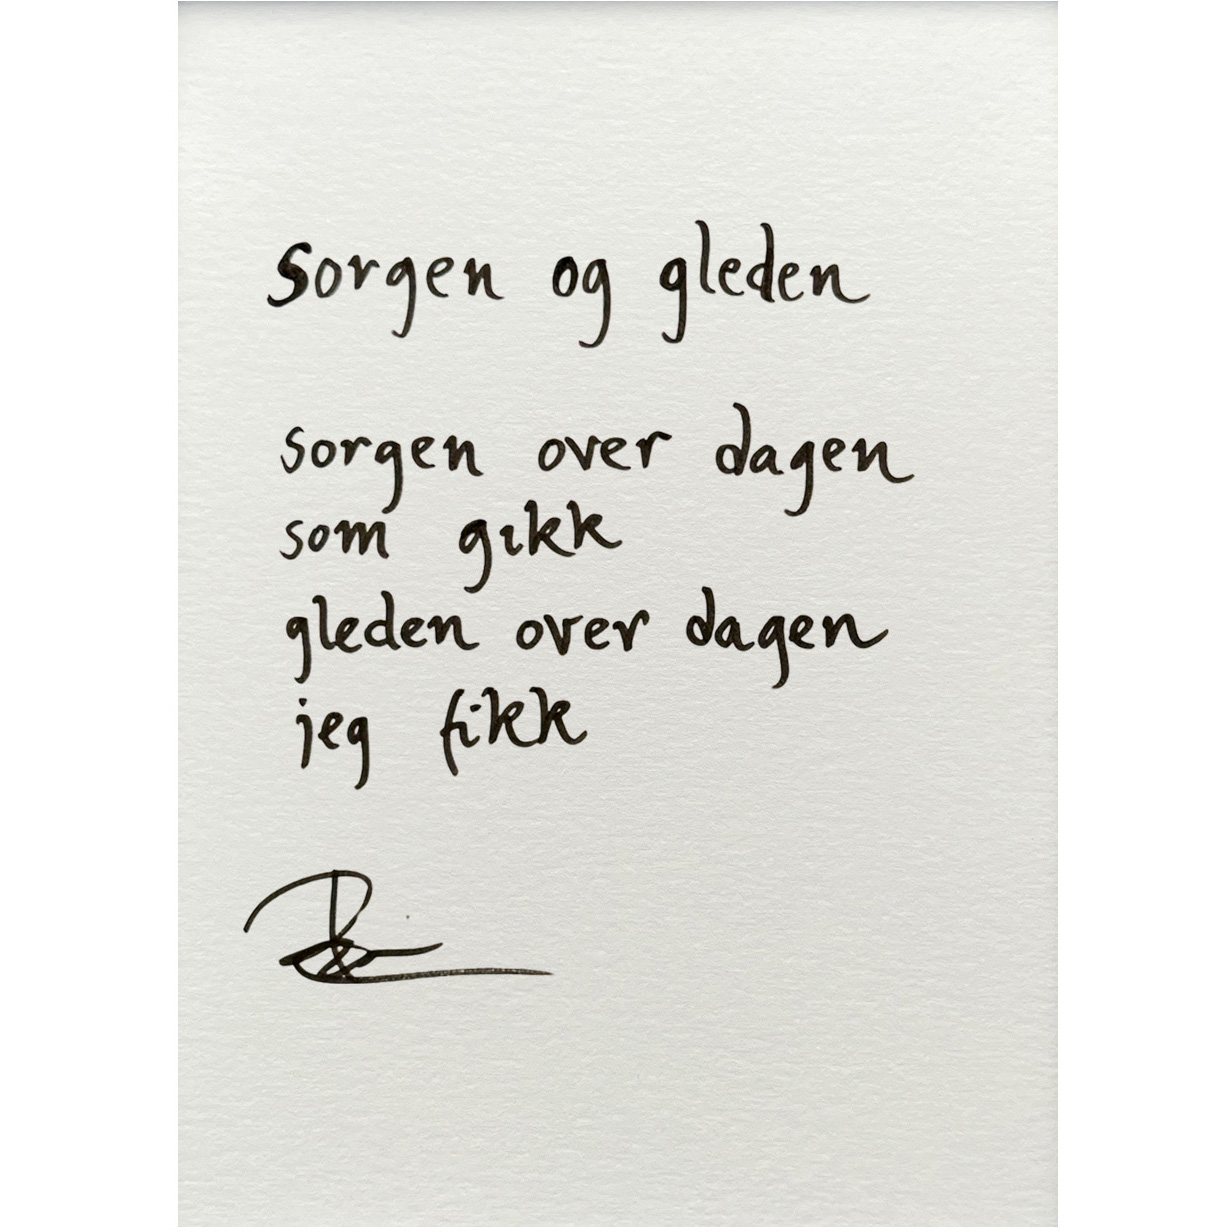 Sorgen og gleden
sorgen over dagen
som gikk
gleden over dagen
jeg fikk